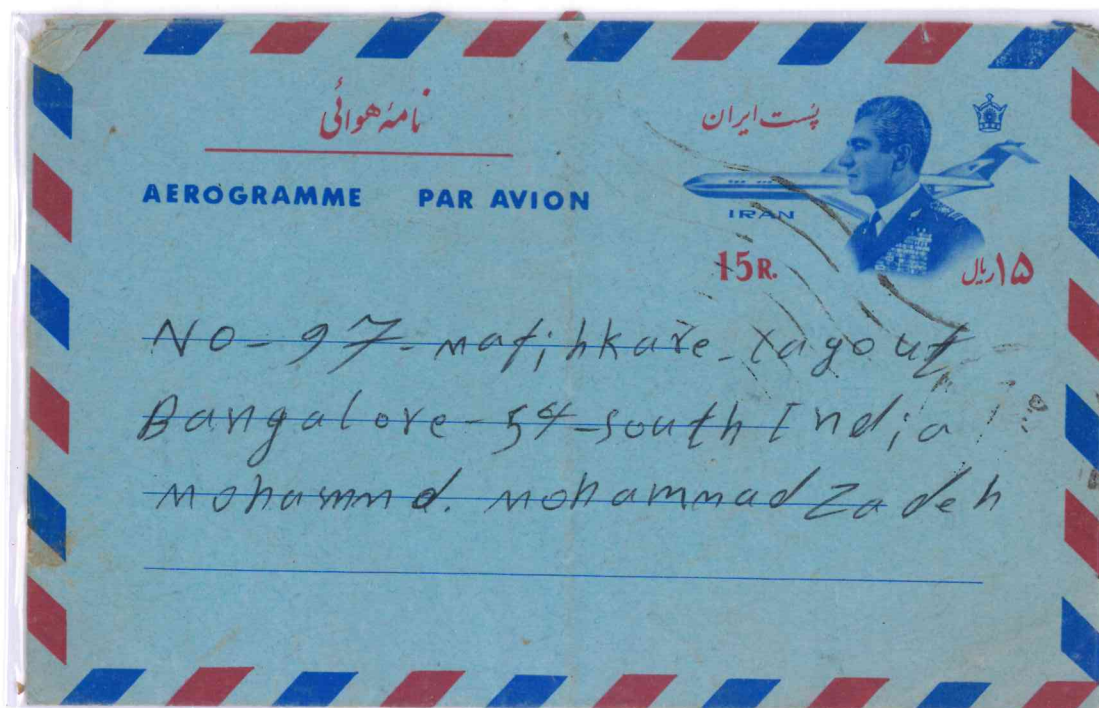 نامهٔ هوائی
پست ایران
AEROGRAMME PAR AVION
IRAN
15 R.
۱۵ ریال
No-97-matihkare-Layout
Bangalore-54-south India
mohammd. mohammadzadeh